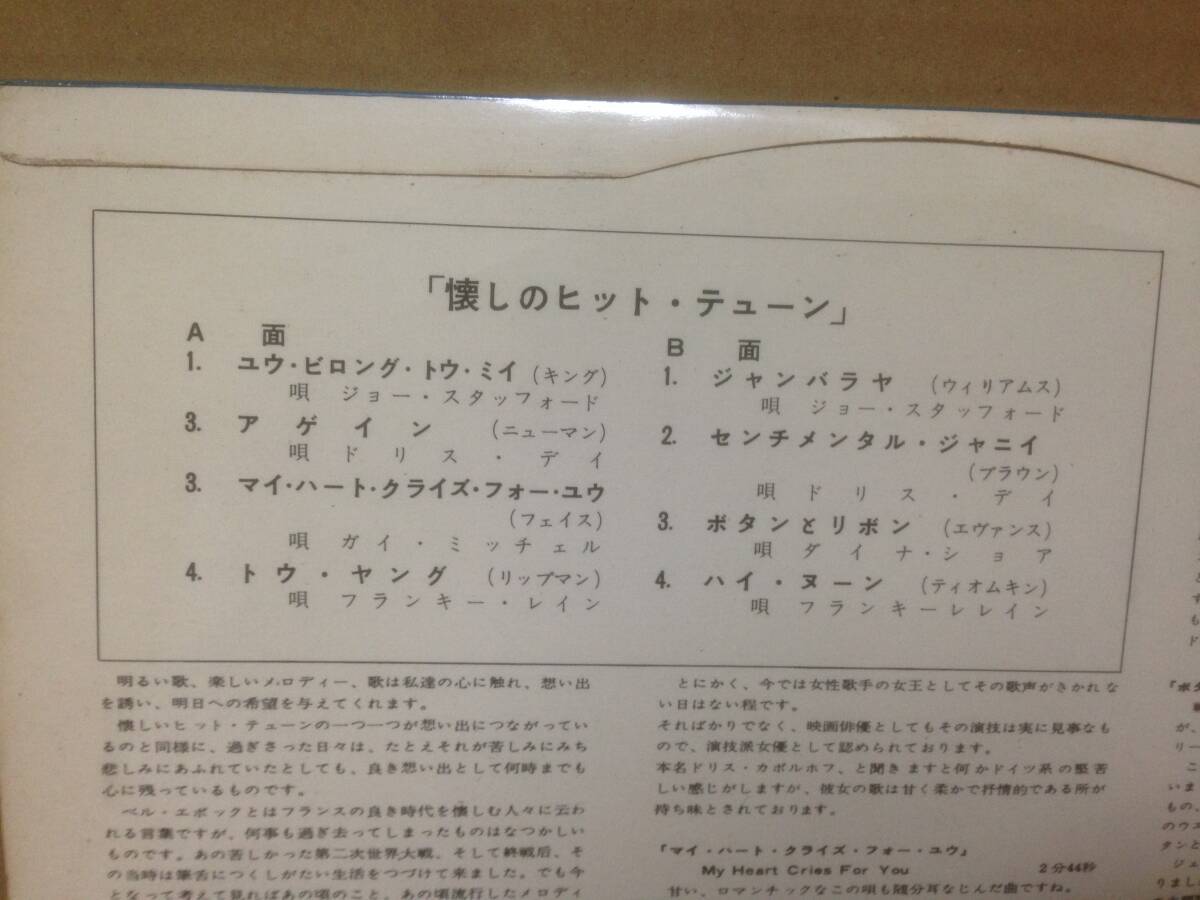 「懐しのヒット・テューン」
A 面
1. ユウ・ビロング・トウ・ミイ (キング)
唄 ジョー・スタッフォード
3. アゲイン (ニューマン)
唄 ドリス・デイ
3. マイ・ハート・クライズ・フォー・ユウ
(フェイス)
唄 ガイ・ミッチェル
4. トウ・ヤング (リップマン)
唄 フランキー・レイン
B 面
1. ジャンバラヤ (ウィリアムス)
唄 ジョー・スタッフォード
2. センチメンタル・ジャニイ
(ブラウン)
唄 ドリス・デイ
3. ボタンとリボン (エヴァンス)
唄 ダイナ・ショア
4. ハイ・ヌーン (ティオムキン)
唄 フランキーレレイン
明るい歌、楽しいメロディー、歌は私達の心に触れ、想い出
を誘い、明日への希望を与えてくれます。
懐しいヒット・テューンの一つ一つが想い出につながってい
るのと同様に、過ぎさった日々は、たとえそれが苦しみにみち
悲しみにあふれていたとしても、良き想い出として何時までも
心に残っているものです。
ベル・エポックとはフランスの良き時代を懐しむ人々に云わ
れる言葉ですが、何事も過ぎ去ってしまったものはなつかしい
ものです。あの苦しかった第二次世界大戦、そして終戦后、そ
の当時は筆舌につくしがたい生活をつづけて来ました。でも今
となって考えて見ればあの頃のこと、あの頃流行したメロディ
とにかく、今では女性歌手の女王としてその歌声がきかれな
い日はない程です。
そればかりでなく、映画俳優としてもその演技は実に見事なも
ので、演技派女優として認められております。
本名ドリス・カポルホフ、と聞きますと何かドイツ系の堅苦
しい感じがしますが、彼女の歌は甘く柔かで抒情的である所が
持ち味とされております。
「マイ・ハート・クライズ・フォー・ユウ」
My Heart Cries For You 2分44秒
甘い、ロマンチックなこの唄も随分耳なじんだ曲ですね。